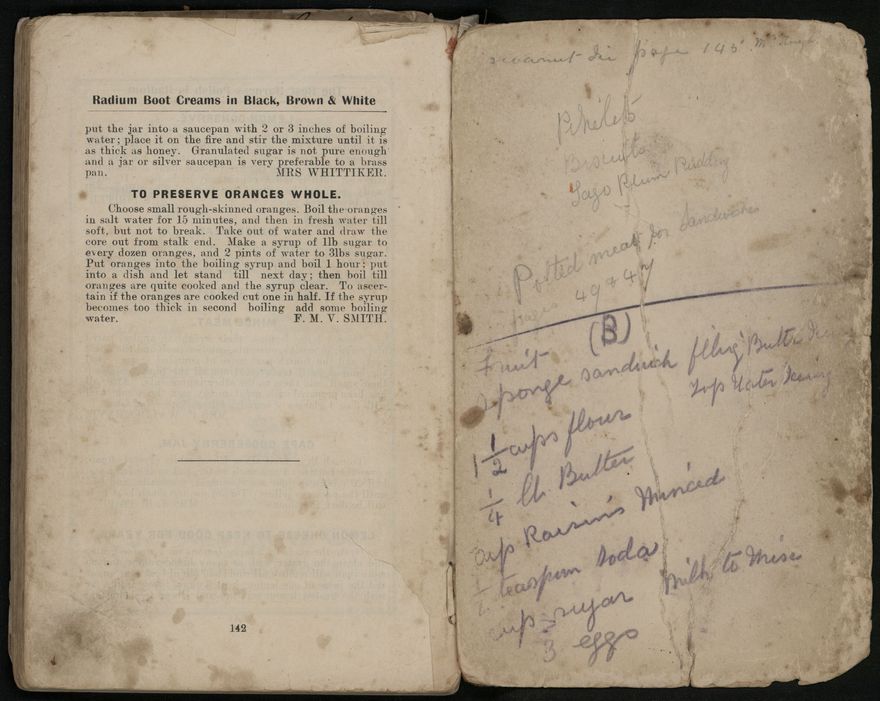 Radium Boot Creams in Black, Brown & White
put the jar into a saucepan with 2 or 3 inches of boiling
water; place it on the fire and stir the mixture until it is
as thick as honey. Granulated sugar is not pure enough
and a jar or silver saucepan is very preferable to a brass
pan. MRS WHITTIKER.
TO PRESERVE ORANGES WHOLE.
Choose small rough-skinned oranges. Boil the oranges
in salt water for 15 minutes, and then in fresh water till
soft, but not to break. Take out of water and draw the
core out from stalk end. Make a syrup of 1lb sugar to
every dozen oranges, and 2 pints of water to 3lbs sugar.
Put oranges into the boiling syrup and boil 1 hour; put
into a dish and let stand till next day; then boil till
oranges are quite cooked and the syrup clear. To ascer-
tain if the oranges are cooked cut one in half. If the syrup
becomes too thick in second boiling add some boiling
water. F. M. V. SMITH.
142
page 145
Pikelets
Biscuits
Sago Plum Pudding
Potted meat for Sandwiches
pages 49 & 47
(B)
Fruit
Sponge sandwich filling Butter
Top Water Icing
1 1/2 cups flour
1/4 lb Butter
cup Raisins Minced
1/2 teaspoon soda
cup sugar Milk to Mix
3 eggs